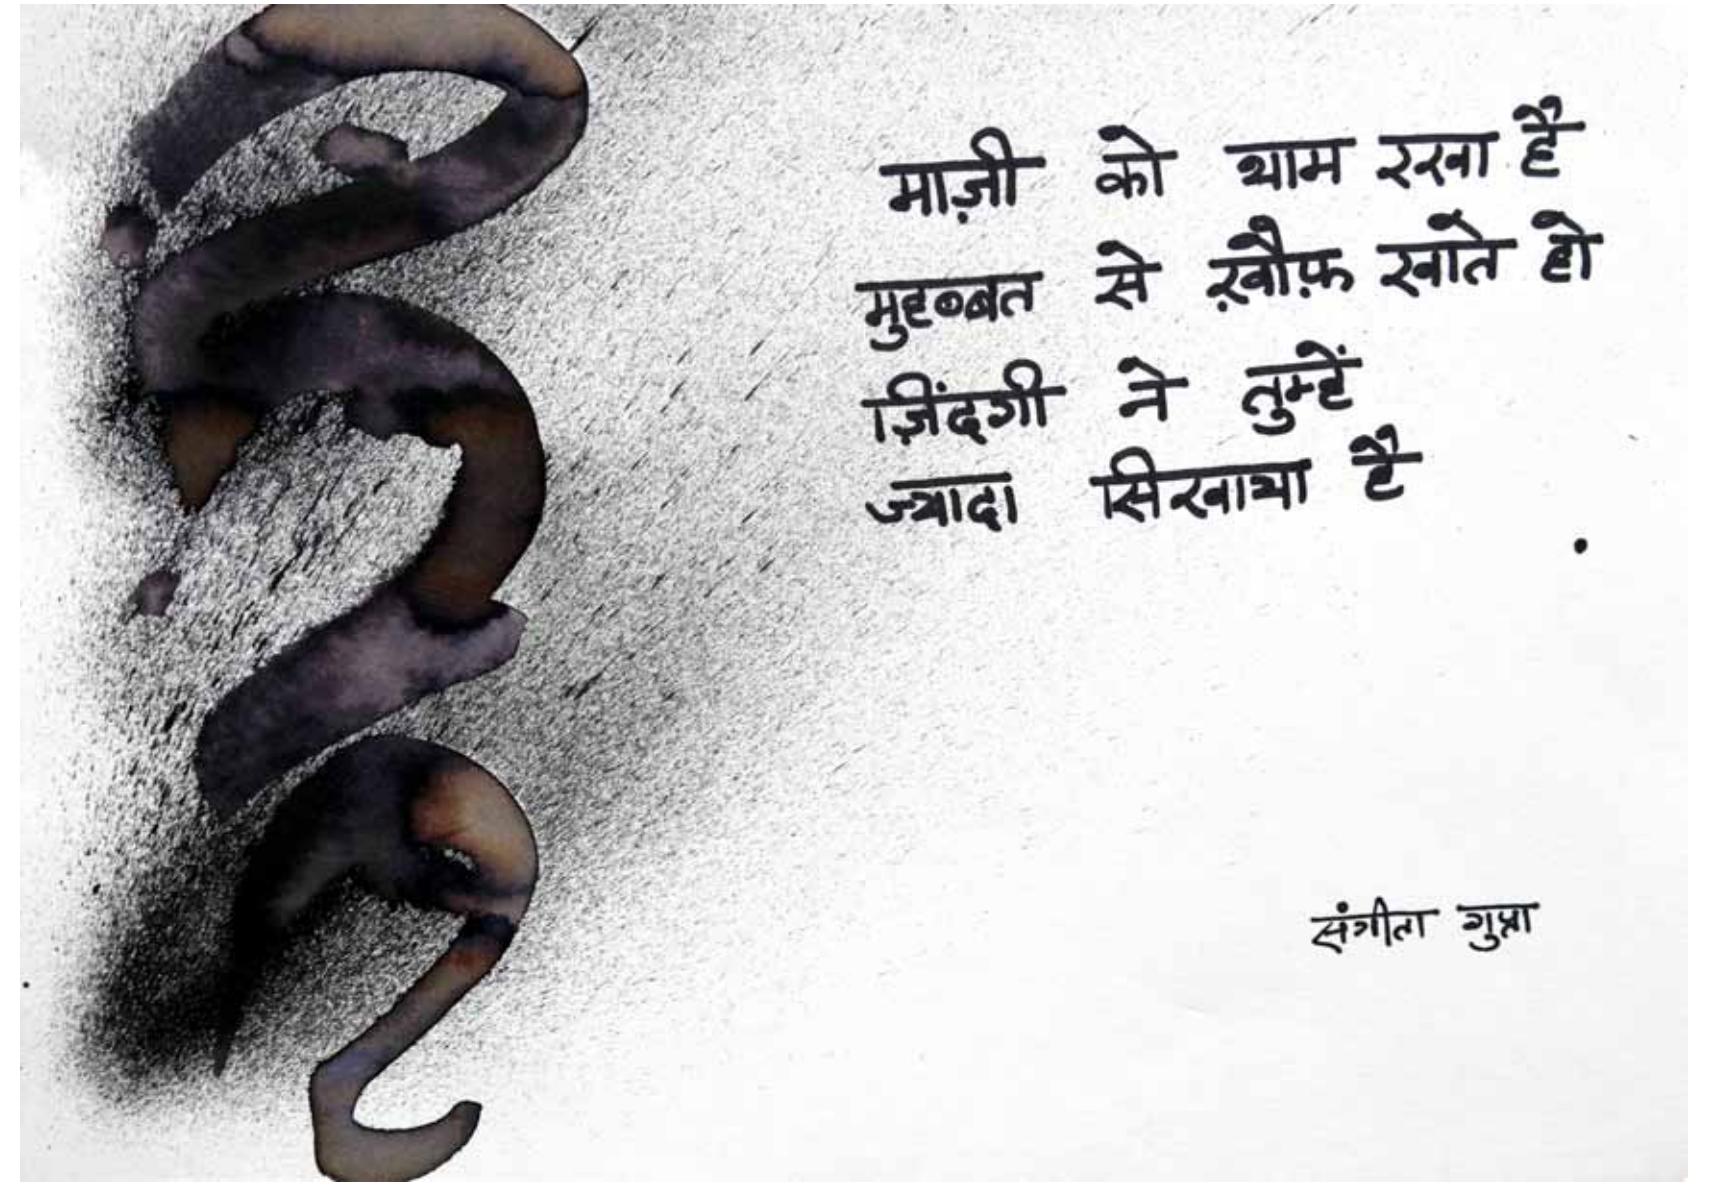 माज़ी को थाम रखा है
मुहब्बत से ख़ौफ़ खाते हो
ज़िंदगी ने तुम्हें
ज्यादा सिखाया है
संगीता गुप्ता